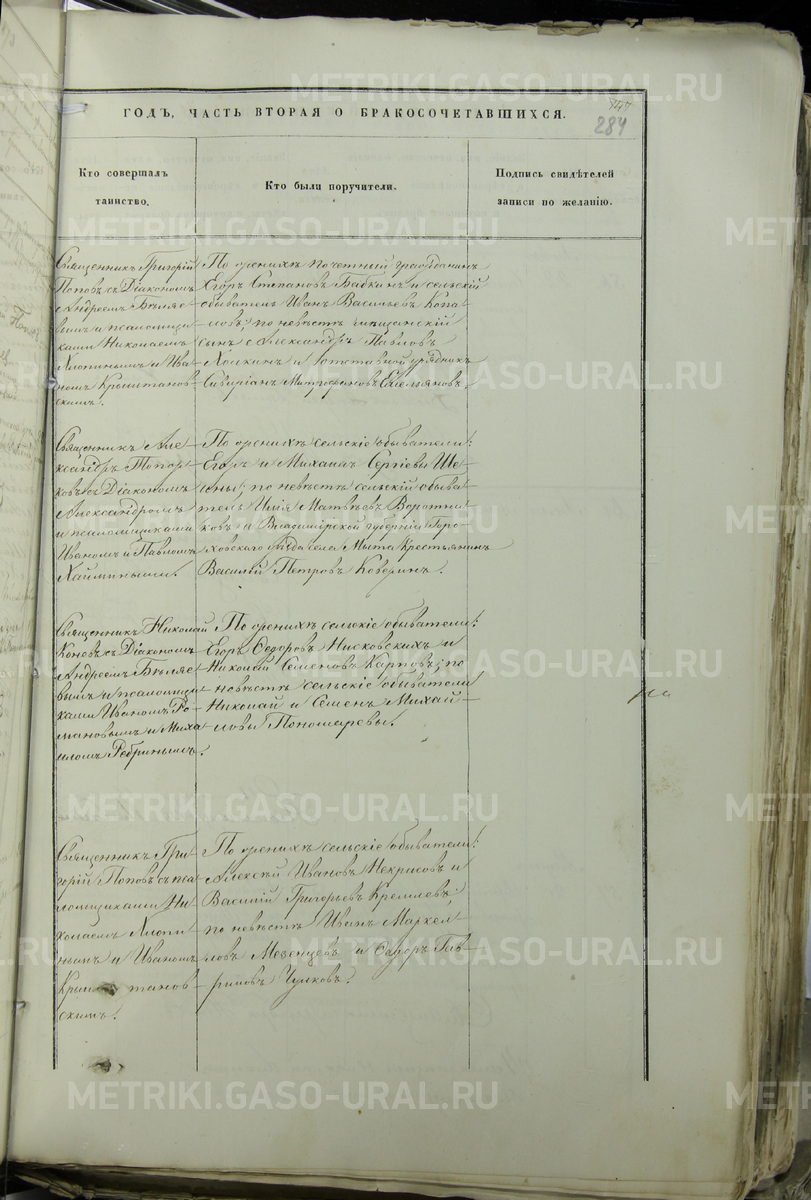 747
284
ГОДЪ, ЧАСТЬ ВТОРАЯ О БРАКОСОЧЕТАВШИХСЯ.
Кто совершалъ
таинство.
Кто были поручители.
Подпись свидѣтелей
записи по желанію.
Священникъ Григорій
Поповъ съ Діакономъ
Андреемъ Бѣляе-
вымъ и псаломщи-
ками Николаемъ
Хлопинымъ и Ива-
номъ Крыштанов-
скимъ.
По женихѣ почетный гражданинъ
Егоръ Степановъ Бабкинъ и сельскій
обыватель Иванъ Васильевъ Копа-
ловъ; по невѣстѣ мѣщанскій
сынъ Александръ Павловъ
Холкинъ и отставной урядникъ
Митрофановъ Емельяновъ.
Священникъ Але-
ксандръ Топор-
ковъ съ Діакономъ
Александромъ
и псаломщиками
Иваномъ и Павломъ
По женихѣ сельскіе обыватели:
Егоръ и Михаилъ Сергіевы Ше-
ины; по невѣстѣ сельскій обыва-
тель Илія Матвѣевъ Воротни-
ковъ и Владимірской губерніи Горо-
ховскаго уѣзда села Мыта крестьянинъ
Василій Петровъ Коверинъ.
Священникъ Николай
Коневъ съ Діакономъ
Андреемъ Бѣляе-
вымъ и псаломщи-
ками Иваномъ Ро-
мановымъ и Миха-
иломъ Ребринымъ.
По женихѣ сельскіе обыватели:
Егоръ Ѳедоровъ Нисковскихъ и
Николай Семеновъ Карповъ; по
невѣстѣ сельскіе обыватели
Николай и Семенъ Михай-
ловы Пономаревы.
Священникъ Гри-
горій Поповъ съ пса-
ломщиками Ни-
колаемъ Хлопи-
нымъ и Иваномъ
Крыштанов-
скимъ.
По женихѣ сельскіе обыватели:
Алексѣй Ивановъ Некрасовъ и
Василій Григорьевъ Кремлевъ;
по невѣстѣ Иванъ Маркел-
ловъ Мезенцевъ и Ѳедоръ Гав-
риловъ Чулковъ.
METRIKI.GASO-URAL.RU